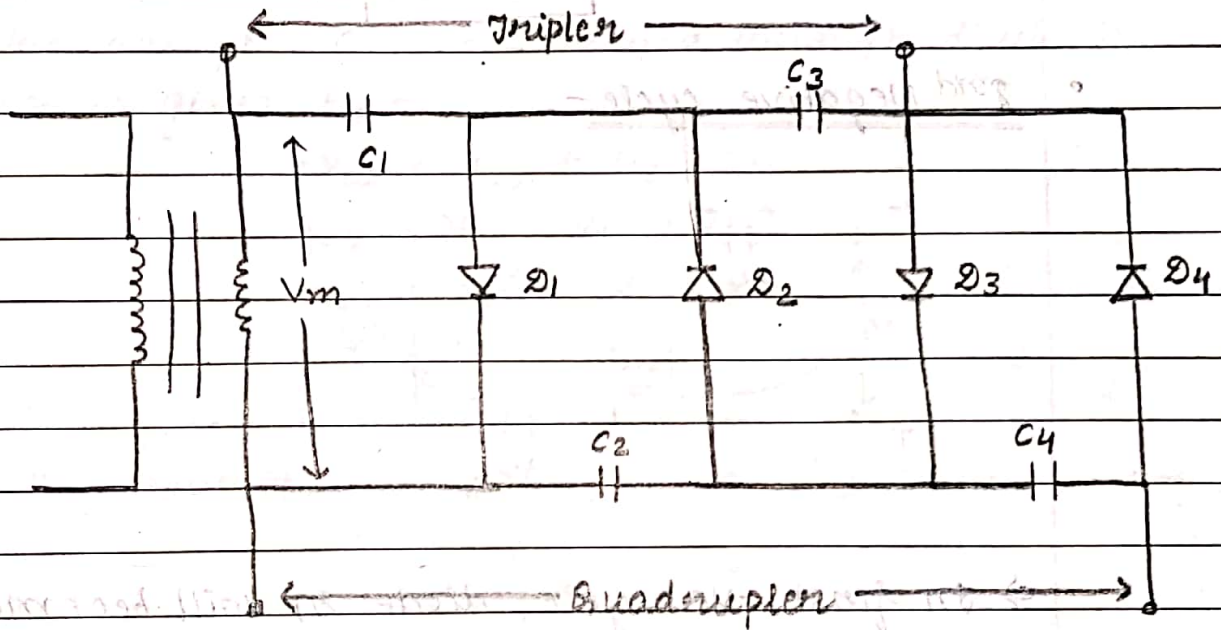 Tripler
C3
C1
Vm
D1
D2
D3
D4
C2
C4
Quadrupler